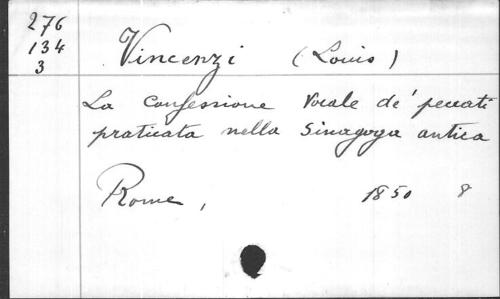 276
134
3
Vincenzi (Louis)
La Confessione Vocale de' peccati
praticata nella Sinagoga antica
Rome, 1850 8